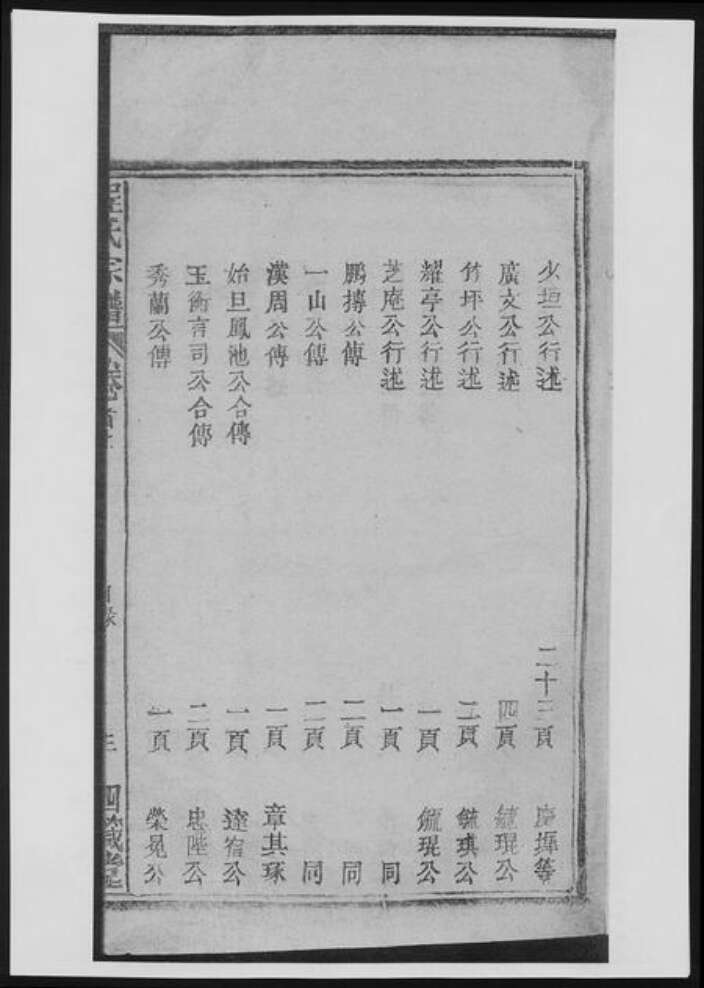 少垣公行述 二十二頁 慶墀等
廣文公行述 四頁 毓琨公
竹坪公行述 二頁 毓琪公
耀亭公行述 一頁 毓琨公
芝庵公行述 一頁 同
鵬摶公傳 二頁 同
一山公傳 二頁 同
漢周公傳 一頁 章其琢
始旦鳳池公合傳 一頁 達宿公
玉衡有司公合傳 二頁 忠陛公
秀蘭公傳 一頁 榮晃公
程氏宗譜 卷首 目錄 三